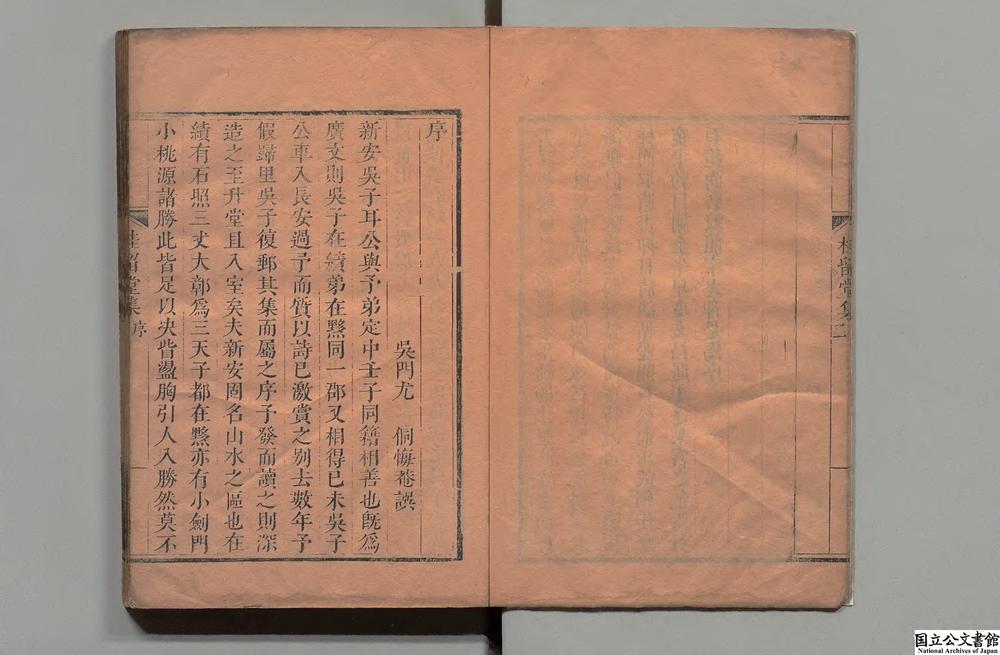 序
吳門尤　侗悔菴譔
新安吳子耳公與予弟定中壬子同籍相善也旣爲
廣文則吳子在績弟在黟同一郡又相得已未吳子
公車入長安過予而質以詩已激賞之别去數年予
假歸里吳子復郵其集而屬之序予發而讀之則深
造之至升堂且入室矣夫新安固名山水之區也在
績有石照三丈大鄣爲三天子都在黟亦有小劍門
小桃源諸勝此皆足以决眥盪胸引人入勝然莫不
桂留堂集　序
国立公文書館
National Archives of Japan